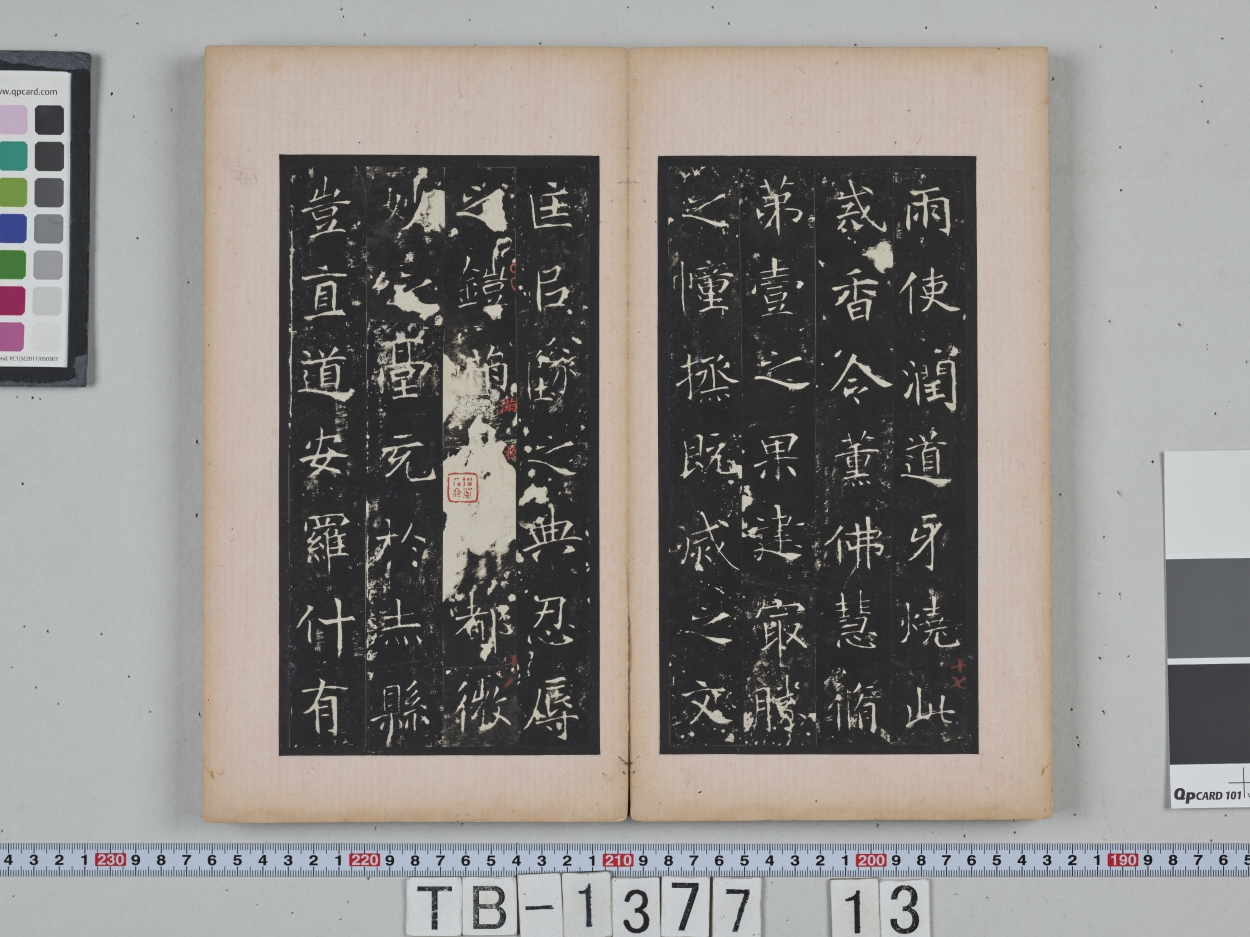 雨使潤道牙燒此
惑香令薰佛慧脩
弟壹之果建冣勝
之幢拯既滅之文
匡㠯墜之典忍辱
之鎧滿都微
妙之臺充於赤縣
豈直道安羅什有
十七
滿
www.qpcard.com
QpCARD 101
4 3 2 1 230 9 8 7 6 5 4 3 2 1 220 9 8 7 6 5 4 3 2 1 210 9 8 7 6 5 4 3 2 1 200 9 8 7 6 5 4 3 2 1 190 9 8 7 6 5
TB-1377 13